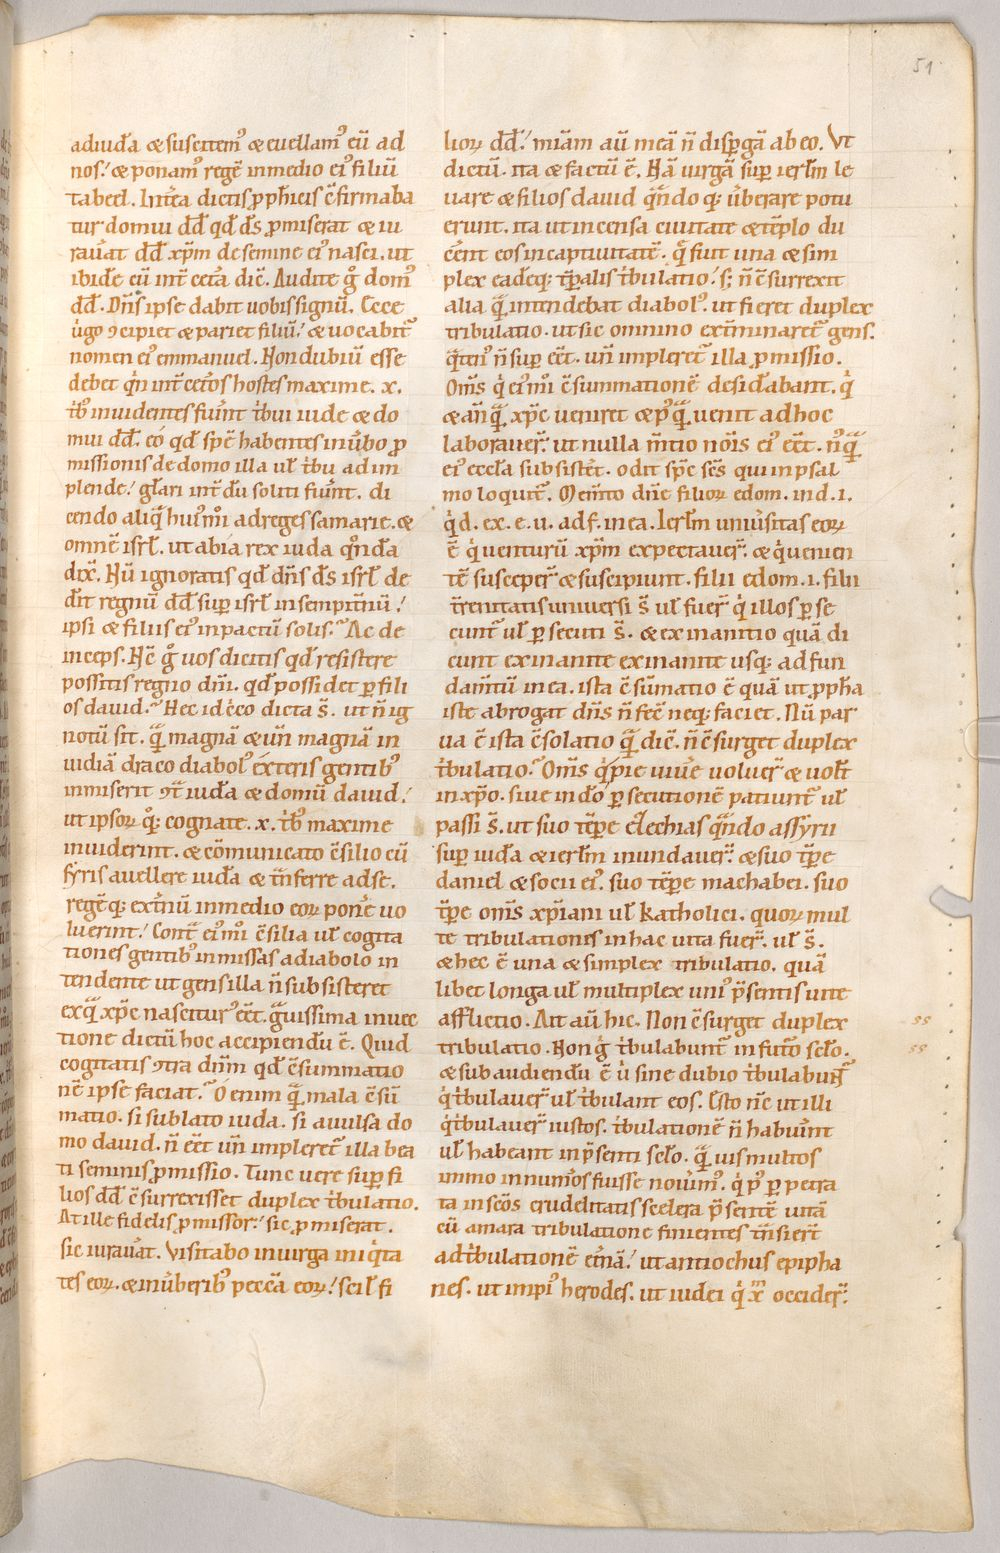 51
adiudā & suscitem᷒ & euellam᷒ eū ad
nos. & ponam᷒ regē in medio ei᷒ filiū
tabeel. Int̄ea dictis ꝓph̄icis ꝯfirmaba
tur domui dd̄ qd̄ ds̄ ꝓmiserat & iu
rau̅at dd̄ xp̄m de semine ei᷒ nasci. ut
ibidē cū int̄ cet̄a dic̄. Audite g̊ dom᷒
dd̄. Dn̄s ipse dabit uobis signū. Ecce
u̅go ꝯcipiet & pariet filiū. & uocabit᷑
nomen ei᷒ emmanuel. Non dubiū esse
debet qin int̄ cet̄os hostes maxime .x.
t̅b᷒ inuidentes fuer̄nt t̅bui iude & do
mui dd̄. eo qd̄ spē habentes in u̅bo ꝓ
missionis de domo illa ul̄ t̅bu ad im
plende. gl̄ari int̄dū soliti fuer̄nt. di
cendo aliq̄ hui᷒m̊i ad reges samarie. &
omnē isrl̄. ut abia rex iuda qͦndā
dix̄. Nū ignoratis qd̄ dn̄s ds̄ isrl̄ de
dit regnū dd̄ sup̄ isrl̄ in sempit̄nū.
ipsi & filiis ei᷒ in pactū solis. Ac de
inceps. Nc̄ g̊ uos dicitis qd̄ resistere
possitis regno dn̄i. qd̄ possidet ꝑ fili
os dauid. Hec idc̊co dicta s̄. ut n̄ ig
notū sit. qā magnā & un̄ magnā in
uidiā draco diabol᷒ ext̄is gentib᷒
inmiserit ꝯt̄ iudā & domū dauid.
ut ipsoꝝ qꝫ cognate .x. t̅b᷒ maxime
inuiderint. & cōmunicato ꝯsilio cū
syris auellere iudā & t̄nsferre ad se.
regēqꝫ ext̄nū in medio eoꝝ pon̄e uo
luerint. Cont̄ ei᷒m̊i ꝯsilia ul̄ cogita
tiones gentib᷒ inmissas a diabolo in
tendente ut gens illa n̄ subsisteret
ex qā xp̄c nascitur᷒ eēt. gͣuissima inuec
tione dictū hoc accipiendū ē. Quid
cogitatis ꝯtra dn̄m qd̄ ꝯsummatio
nē ipse faciat. O enim qā mala ꝯsū
matio. si sublato iuda. si auulsa do
mo dauid. n̄ eēt un̄ impleret᷑ illa bea
ti seminis ꝓmissio. Tunc uere sup̄ fi
lios dd̄ ꝯsurrexisset duplex t̅bulatio.
At ille fidelis ꝓmissor. sic ꝓmiserat.
sic iurau̅at. Visitabo in uirga iniq̇ta
tes eoꝝ. & in u̅berib᷒ peccā eoꝝ. scil̄ fi
lioꝝ dd̄. miām aū meā n̄ disꝑgā ab eo. Vt
dictū. ita & factū ē. Nā uirgā sup̄ ierl̄m le
uare & filios dauid qͣndoqꝫ u̅berare potu
erunt. ita ut incensa ciuitate & tēplo du
cēent eos in captiuitatē. q̄ fuit una & sim
plex eademqꝫ t̄ꝑalis t̅bulatio. sꝫ n̄ ꝯsurrexit
alia qā intendebat diabol᷒. ut fieret duplex
tribulatio. ut sic omnino ext̄minaret᷑ gens.
q̄ten᷒ n̄ sup̄ eēt. un̄ impleret᷑ illa ꝓmissio.
Om̄s q̇ ei᷒m̊i ꝯsummationē desid̄abant. q̇
& an̄qā xp̄c ueniret & p᷒qā uenit ad hoc
laborauer̄. ut nulla m̄tio nōis ei᷒ eēt. n̄qā
ei᷒ eccl̄a subsistet̄. odit spc̄ sc̄s qui in psal
mo loquit᷑. Mem̄to dn̄e filioꝝ edom. in d. i.
q̇ d. ex. e. u. ad f. in ea. Ierl̄m uniu̅sitas eoꝝ
ē q̇ uenturū xp̄m expectauer̄. & q̇ uenien
tē susceper̄ & suscipiunt. filii edom .i. filii
t̄renitatis uniuersi s̄ ul̄ fuer̄ q̇ illos ꝑse
cunt᷑ ul̄ ꝑsecuti s̄. & exinanitio quā di
cunt exinanite exinanite usqꝫ ad fun
dam̄tū in ea. ista ꝯsūmatio ē quā ut ꝓph̄a
iste abrogat dn̄s n̄ fec̄ neqꝫ faciet. Nū par
ua ē ista ꝯsolatio qā dic̄. n̄ ꝯsurget duplex
t̅bulatio. Om̄s q̇ pie uiu̅e voluer̄ & uolt̄
in xp̄o. siue in dō ꝑsecutionē patiunt᷑ ul̄
passi s̄. ut suo tēꝑe ezechias qͣndo assyrii
sup̄ iudā & ierl̄m inundauer̄. & suo t̄ꝑe
daniel & socii ei᷒. suo tēꝑe machabei. suo
t̄ꝑe om̄s xp̄iani ul̄ katholici. quoꝝ mul
te tribulationes in hac uita fuer̄. ul̄ s̄.
& hec ē una & simplex tribulatio. quā
libet longa ul̄ multiplex uni᷒ p̄sentis uite
afflictio. Ait aū hic. Non ꝯsurget duplex
tribulatio. Non g̊ t̅bulabunt᷑ in fut̄o sclo̅.
& subaudiendū ē u̇ sine dubio t̅bulabunt᷑
q̇ t̅bulauer̄ ul̄ t̅bulant eos. Esto nc̄ ut illi
q̇ t̅bulauer̄ iustos. t̅bulationē n̄ habuer̄nt
ul̄ habeant in p̄senti sclo̅. qā uis multos
immo innum̄os fuisse nouim᷒. q̇ p᷒ ꝑpetra
ta in sc̄os crudelitatis scelera p̄sentē uitā
cū amara tribulatione finientes t̄nsierī
ad t̅bulationē et̄nā. ut antiochus epipha
nes. ut impi᷒ herodes. ut iudei q̇ xm̄ occider̄.